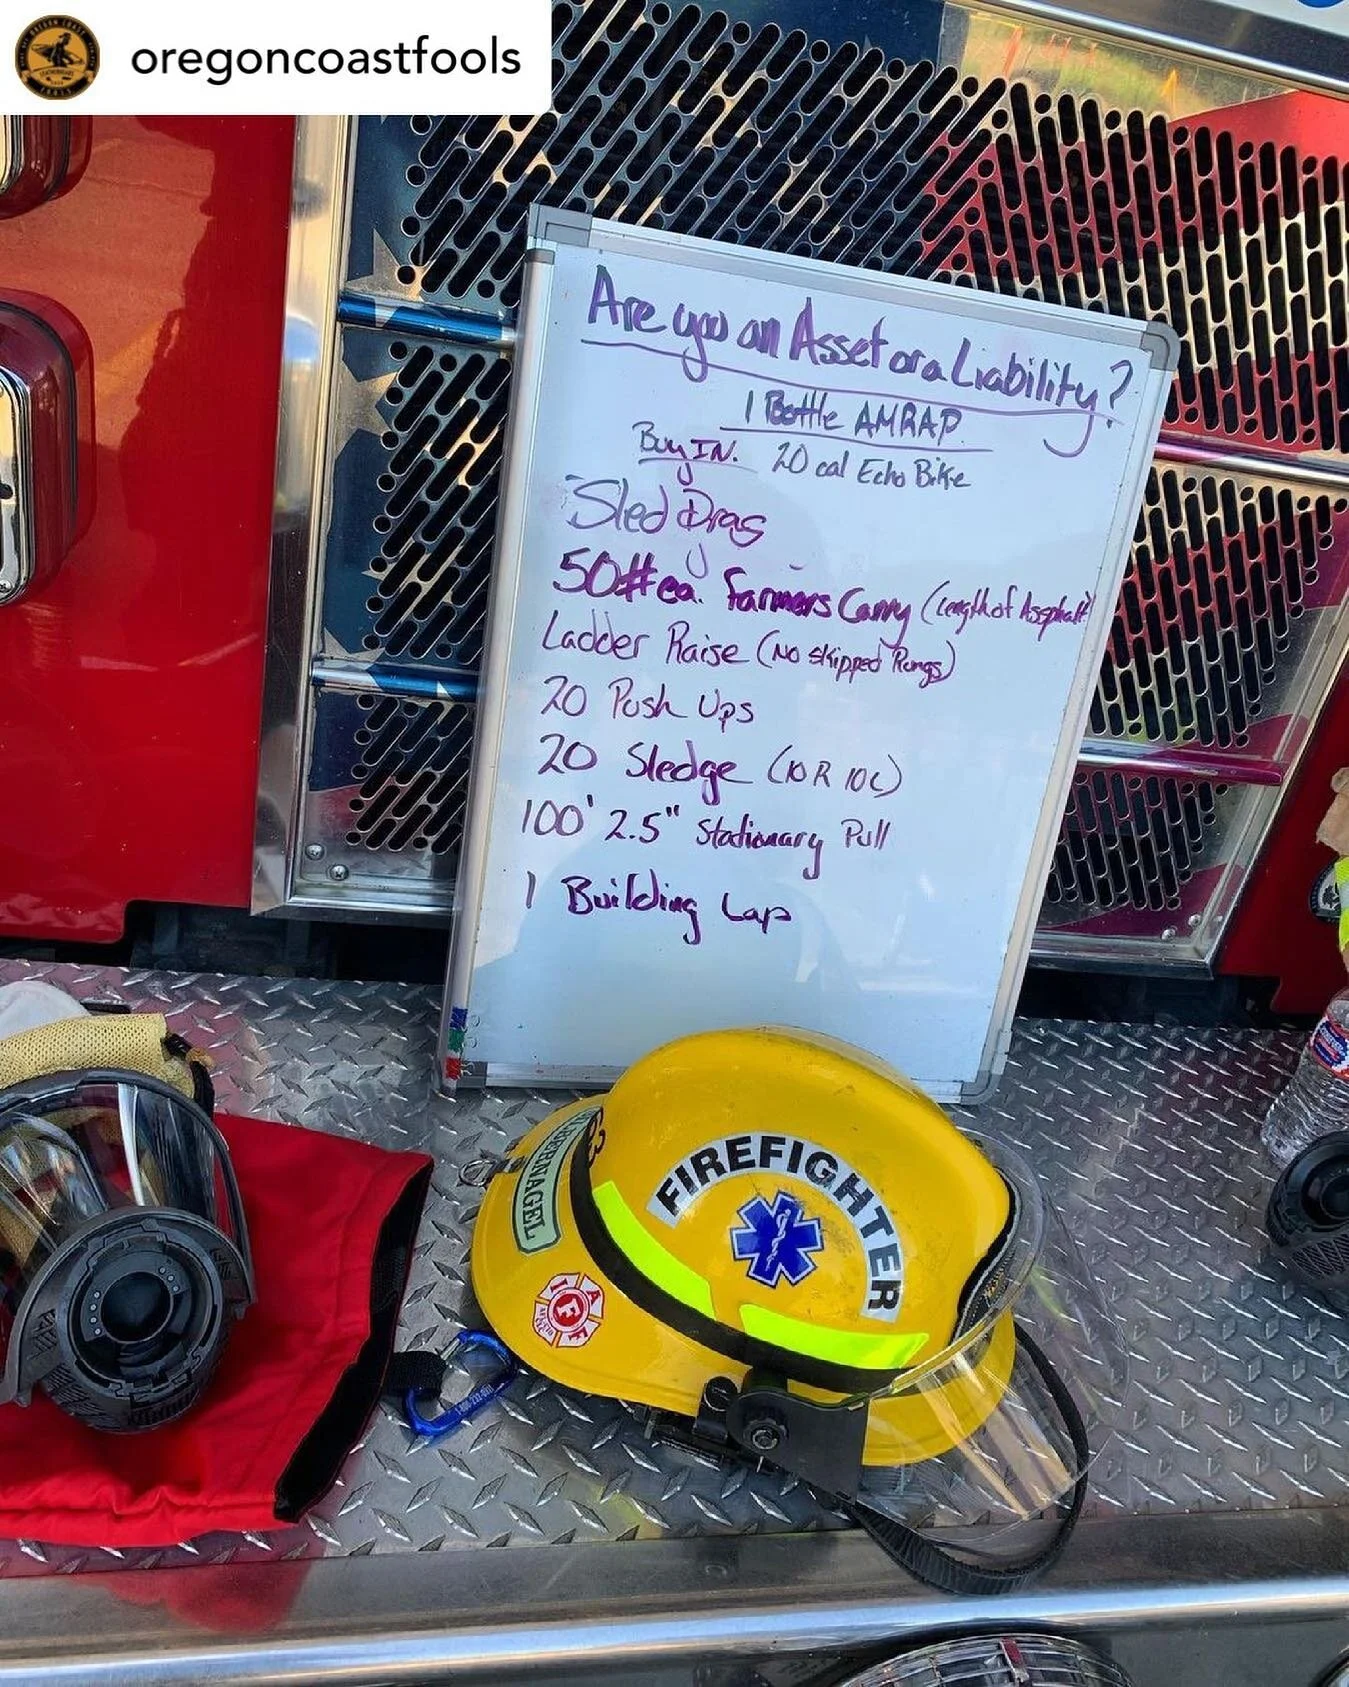 oregoncoastfools
Are you an Asset or a Liability?
1 Bottle AMRAP
Buy IN. 20 cal Echo Bike
Sled Drag
50# ea. Farmers Carry (Length of Asephalt)
Ladder Raise (No skipped Rungs)
20 Push Ups
20 Sledge (10 R 10 L)
100' 2.5" Stationary Pull
1 Building Lap
FIREFIGHTER
IAFF